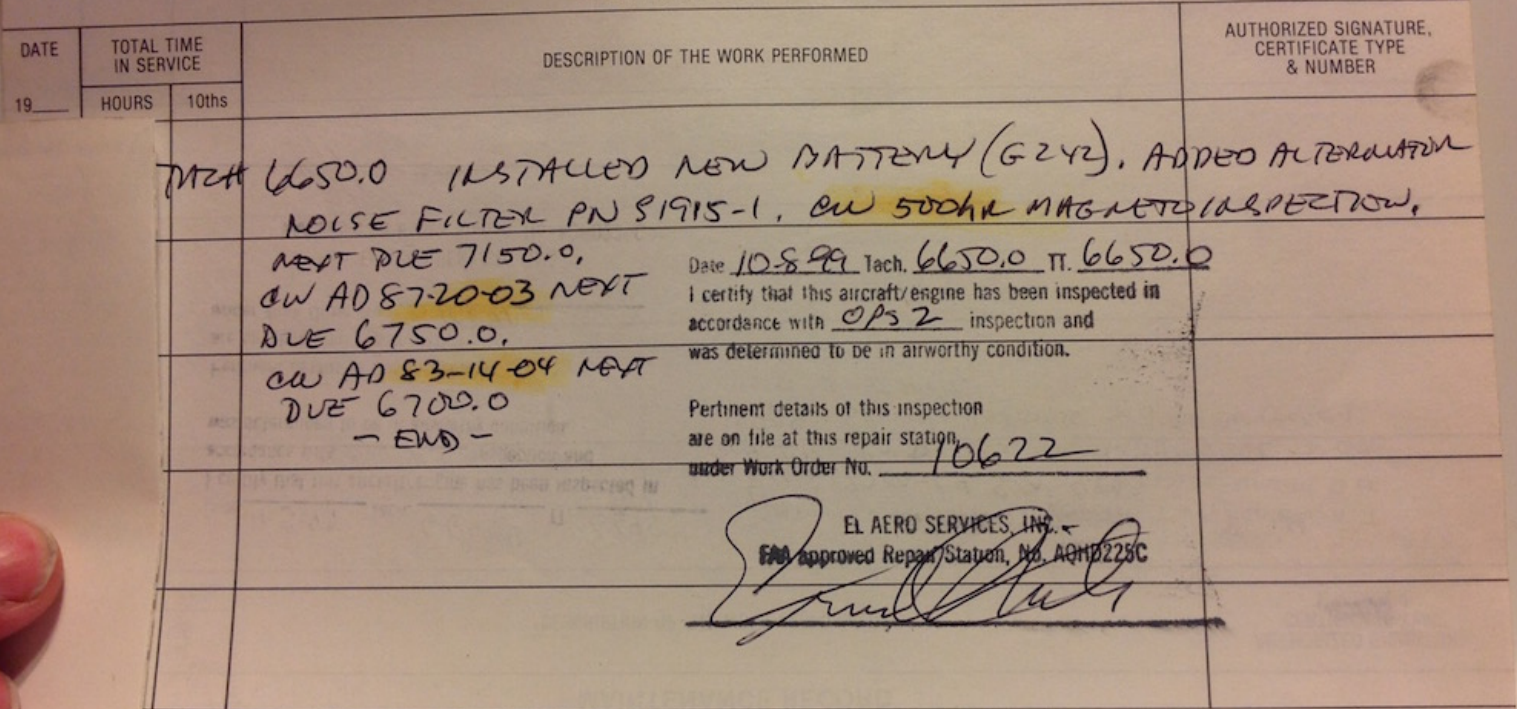 DATE
TOTAL TIME
IN SERVICE
DESCRIPTION OF THE WORK PERFORMED
AUTHORIZED SIGNATURE,
CERTIFICATE TYPE
& NUMBER
19
HOURS 10ths
TACH 6650.0 INSTALLED NEW BATTERY (G242). ADDED ALTERNATOR
NOISE FILTER PN S1915-1. CW 500HR MAGNETO INSPECTION.
NEXT DUE 7150.0.
CW AD 87-20-03 NEXT
DUE 6750.0.
CW AD 83-14-04 NEXT
DUE 6700.0
- END -
Date 10-8-99 Tach. 6650.0 TT. 6650.0
I certify that this aircraft/engine has been inspected in
accordance with OPS 2 inspection and
was determined to be in airworthy condition.
Pertinent details of this inspection
are on file at this repair station,
under Work Order No. 10622
EL AERO SERVICES, INC.
FAA approved Repair Station, No. AQHD225C